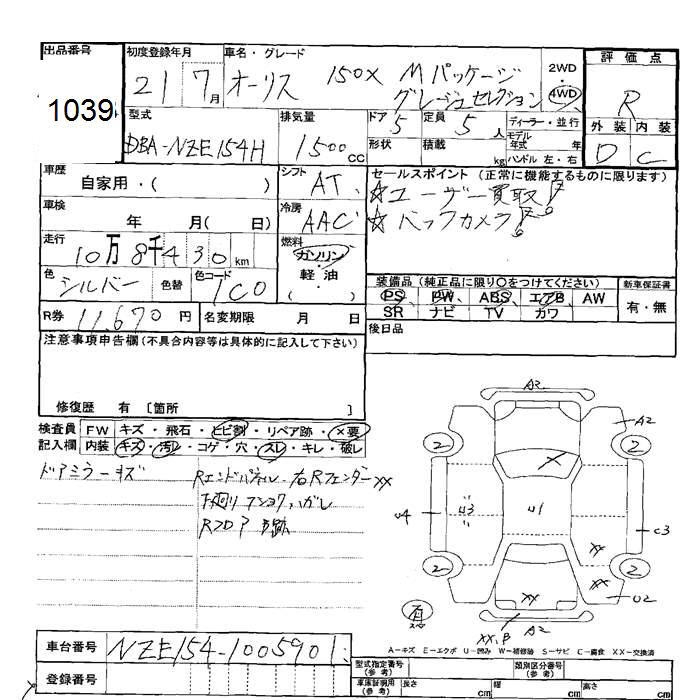 出品番号
1039
初度登録年月
21 7月
車名・グレード
オーリス 150X Mパッケージ
グレージュセレクション
2WD
・
4WD
評価点
R
外装 内装
D C
型式
DBA-NZE154H
排気量
1500cc
ドア
5
定員
5人
形状
積載
kg
ディーラー・並行
モデル
年式 年
ハンドル 左・右
車歴
自家用・( )
シフト
AT
セールスポイント (正常に機能するものに限ります)
☆ユーザー買取!!
☆バックカメラ!!
車検
年 月( 日)
冷房
AAC
走行
10万8千430km
燃料
ガソリン
・
軽油
( )
色
シルバー
色替
色コード
1C0
装備品(純正品に限り○をつけてください)
PS PW ABS エアB AW
SR ナビ TV カワ
新車保証書
有・無
R券
11,670円
名変期限 月 日
後日品
注意事項申告欄(不具合内容等は具体的に記入して下さい)
修復歴 有 [箇所 ]
検査員
記入欄
FW キズ・飛石・ヒビ割・リペア跡・×要
内装 キズ・汚レ・コゲ・穴・スレ・キレ・破レ
ドアミラーキズ
Rエンドパネル・右Rフェンダー××
下廻りフショク、ハガレ
Rフロア 跡
A2
A2
2
2
U4
U3
U1
C3
××
2
2
××
××
U2
××,B
A2
有
A-キズ E-エクボ U-凹み W-補修跡 S-サビ C-腐食 XX-交換済
車台番号
NZE154-1005901
登録番号
型式指定番号
(参考)
類別区分番号
(参考)
車庫証明用
(参考)
長さ cm
幅 cm
高さ cm